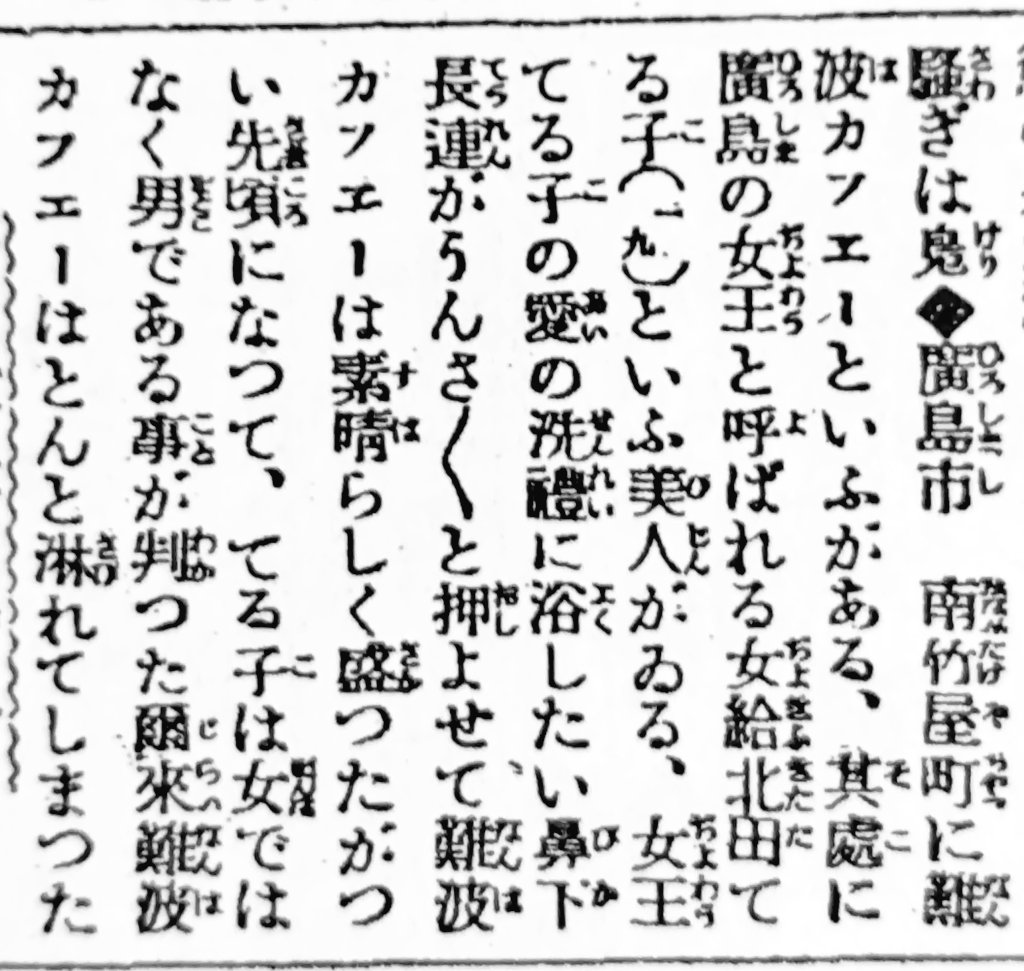 騒ぎは鳧◆廣島市 南竹屋町に難
波カフエーといふがある、其處に
廣島の女王と呼ばれる女給北田て
る子(一九)といふ美人がゐる、女王
てる子の愛の洗禮に浴したい鼻下
長連がうんさ〱と押よせて、難波
カフエーは素晴らしく盛つたがつ
い先頃になつて、てる子は女では
なく男である事が判つた爾來難波
カフエーはとんと淋れてしまつた